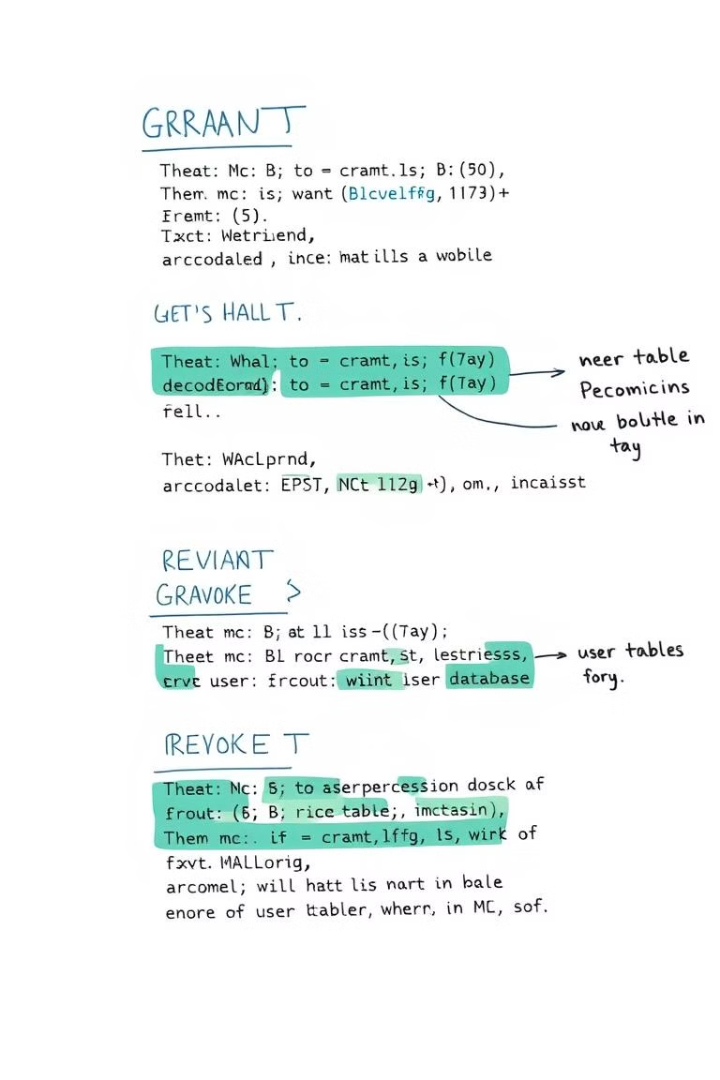 GRRAANT
Theat: Mc: B; to = cramt.ls; B: (50),
Them. mc: is; want (Blcvelffg, 1173)+
Eremt: (5).
Txct: Wetriiend,
arccodaled , ince: mat ills a wobile
GET'S HALL T.
Theat: Whal; to = cramt, is; f(7ay)
decodEorad): to = cramt, is; f(Tay)
fell..
neer table
Pecomicins
noue boltle in
tay
Thet: WAcLprnd,
arccodalet: EPST, NCt 112g +), om., incaisst
REVIANT
GRAVOKE >
Theat mc: B; at ll iss -((Tay);
Theet mc: Bl rocr cramt, st, lestriesss,
crve user: frcout: wiint iser database
user tables
fory.
REVOKE T
Theat: Nc: 5; to aserpercession dosck af
frout: (6; B; rice table;, imctasin),
Them mc:. if = cramt, lffg, ls, wirk of
fxvt. MALLorig,
arcomel; will hatt lis nart in bale
enore of user ttabler, wherr, in MC, sof.